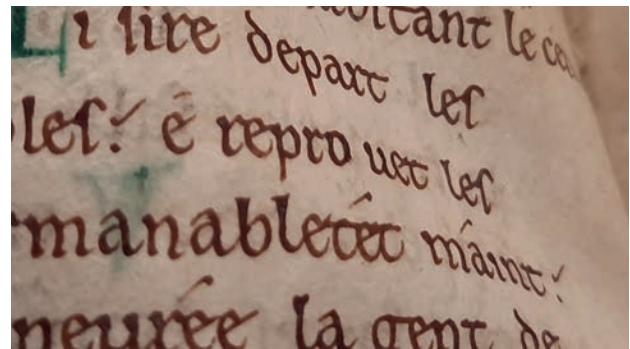 bitant le
Li ſire depart leſ
pleſ: é repro uet leſ
manabletét máint:
neurée la gent de